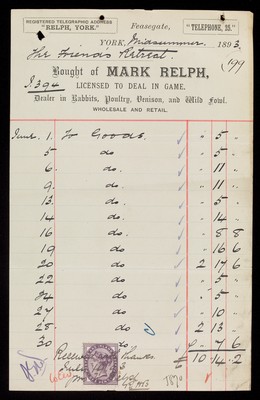 REGISTERED TELEGRAPHIC ADDRESS
"RELPH, YORK."
Feasegate,
"TELEPHONE, 25."
YORK, Midsummer 1893.
The Friends Retreat.
(199
P.394
Bought of MARK RELPH,
LICENSED TO DEAL IN GAME.
Dealer in Rabbits, Poultry, Venison, and Wild Fowl.
WHOLESALE AND RETAIL.
June 1. To Goods. " 5 "
5 do " 5 "
6. do. " 11 "
9. do " 11 "
13. do. " 5 "
14. do. " 14 "
16 do. " 8 8
19 do " 16 6
20 do 2 17 6
22 do " 5 "
24 do " 5 "
27 do " 10 "
28. do 2 13
30. do 6
Received Thanks
£ 10 . 14 . 2
1870